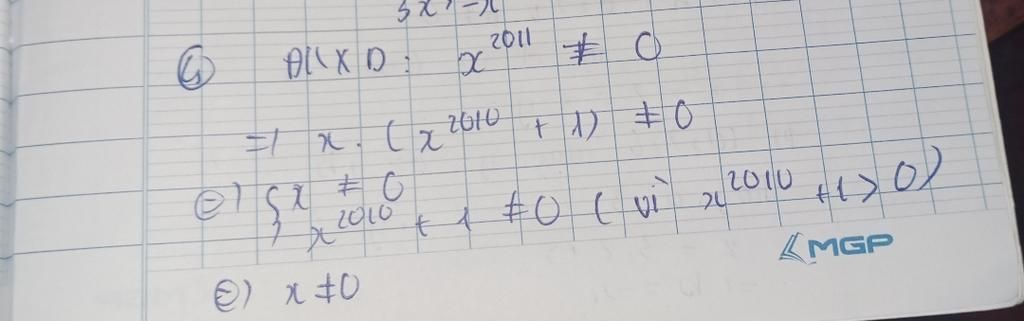 3x² - x
a) ĐKXĐ: x^2011 ≠ 0
=) x. (x^2010 + 1) ≠ 0
(=) { x ≠ 0
x^2010 + 1 ≠ 0 ( vì x^2010 + 1 > 0)
MGP
(=) x ≠ 0